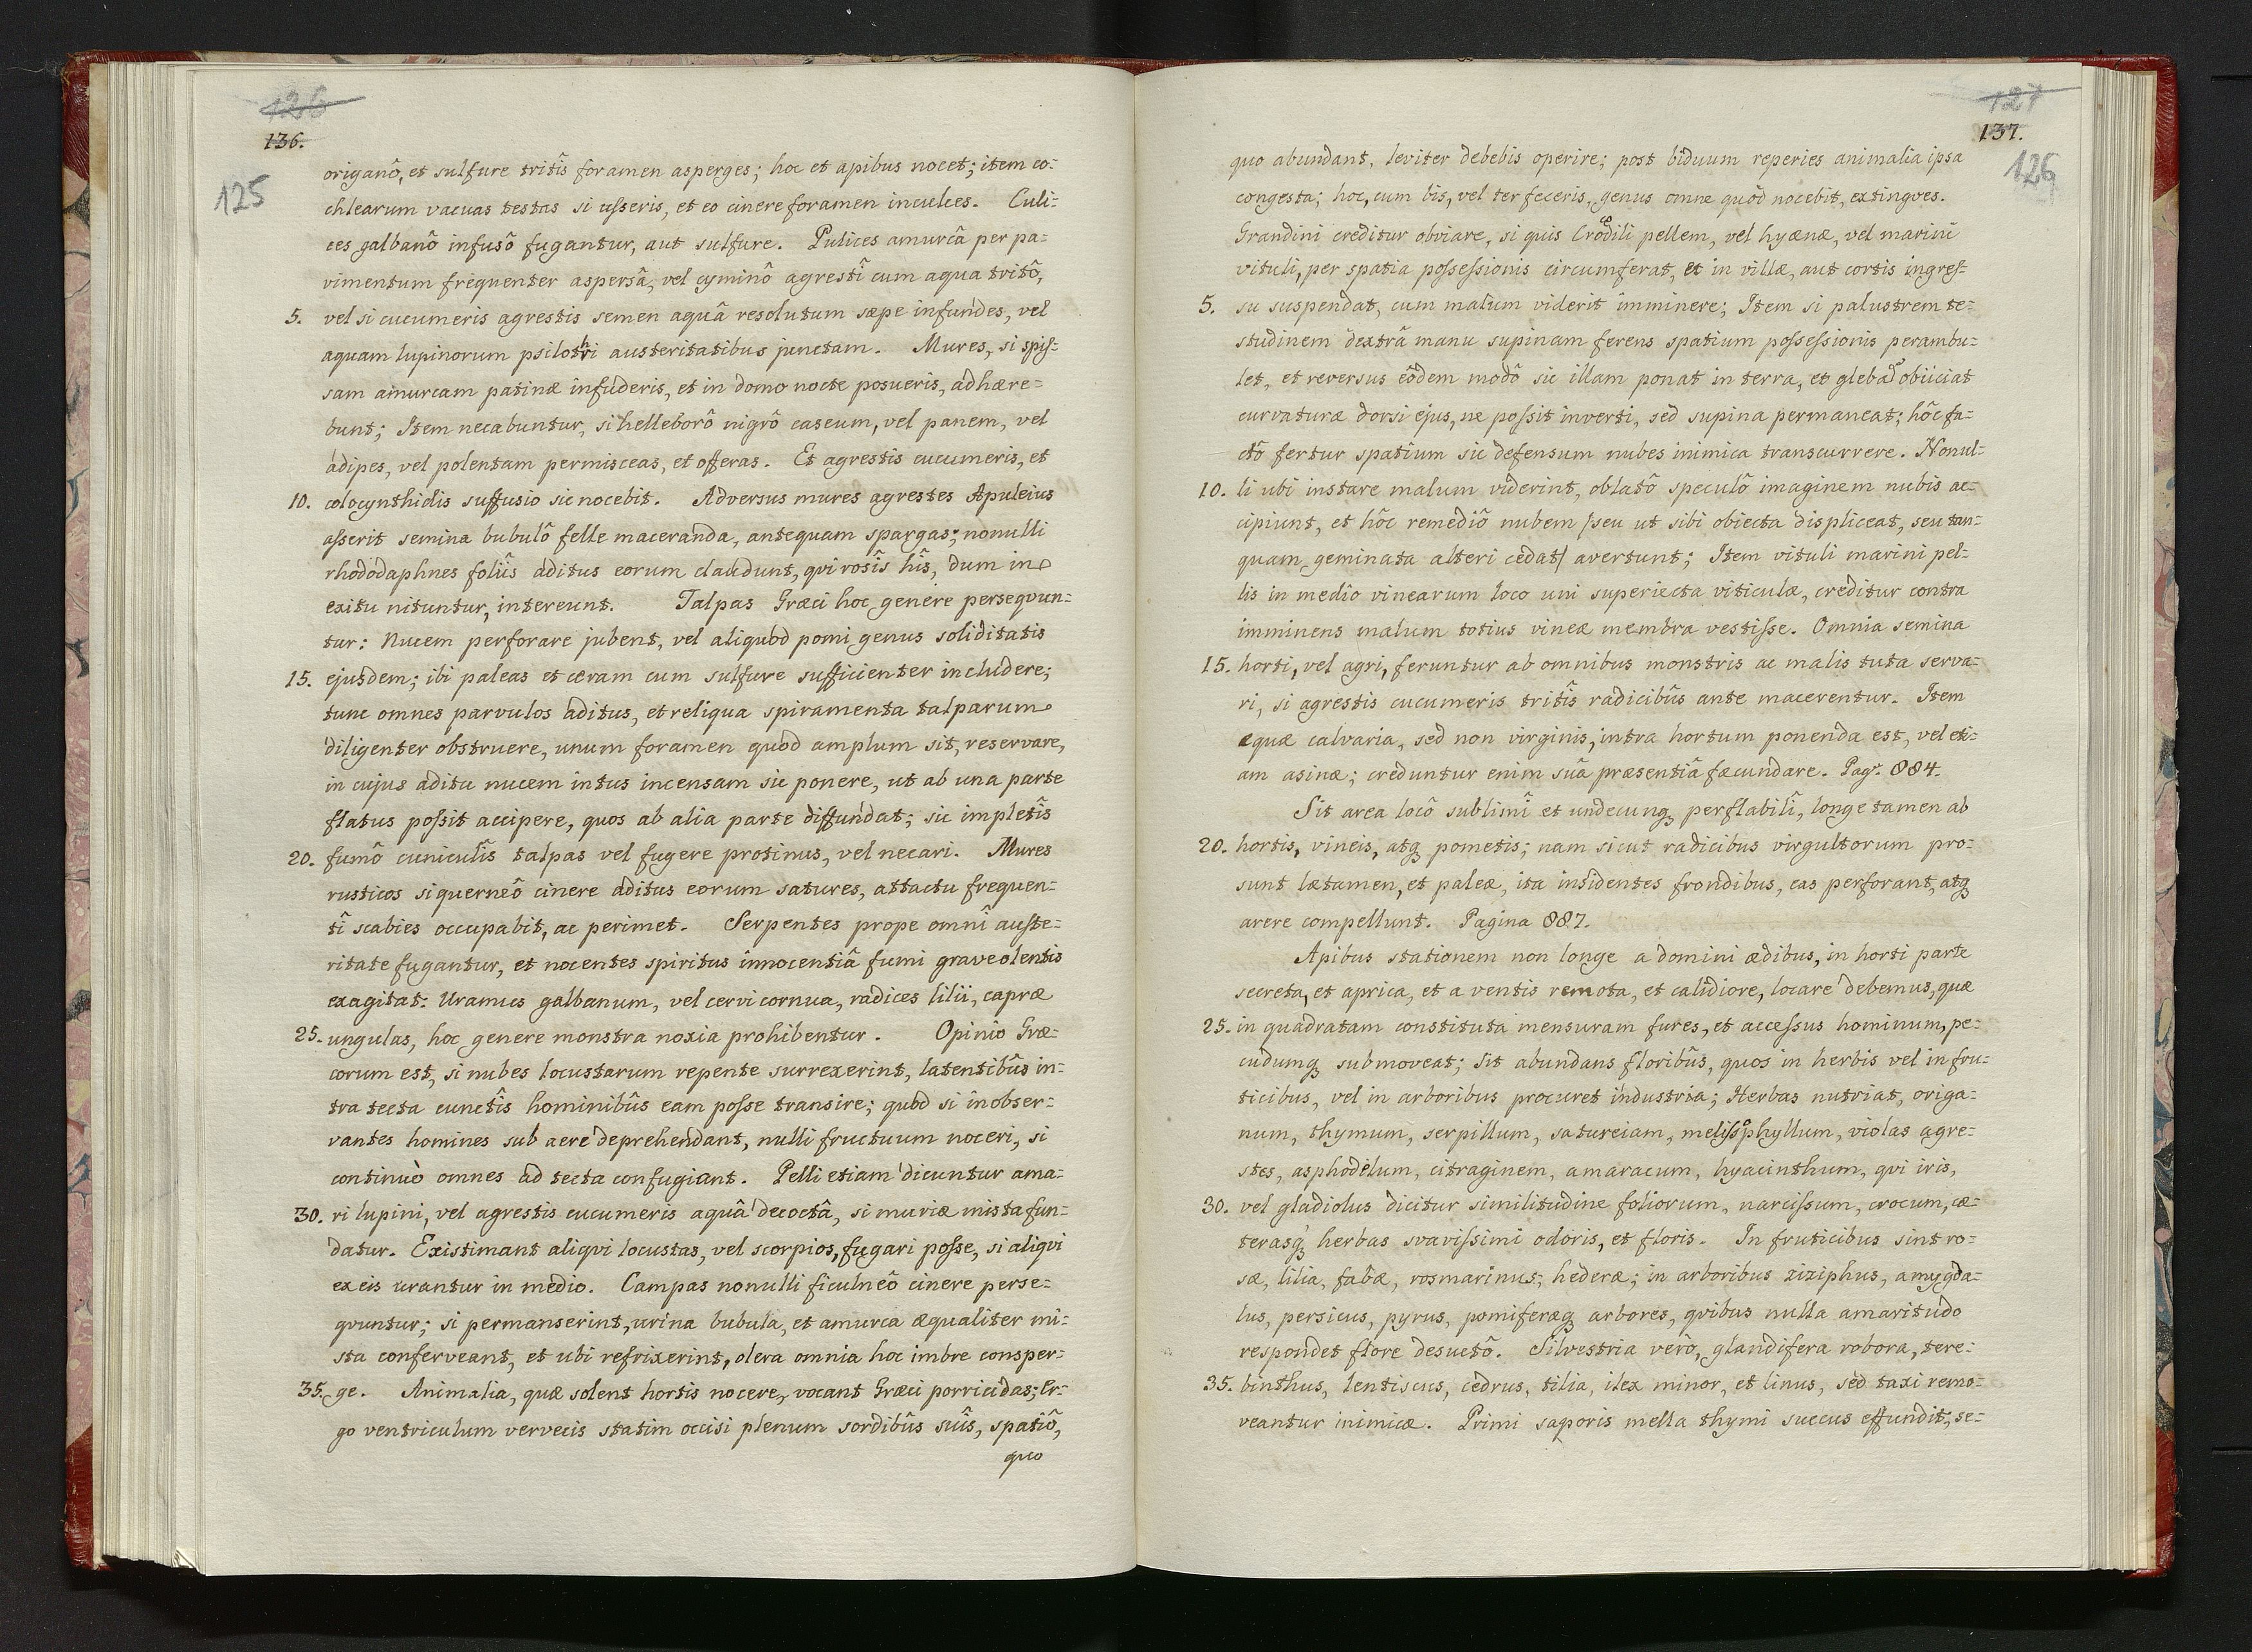 126
136.
125
origanô, et sulfure tritîs foramen asperges; hoc et apibus nocet; item co=
chlearum vacuas testas si usseris, et eo cinere foramen inculces. Culi=
ces galbanô infusô fugantur, aut sulfure. Pulices amurcâ per pa=
vimentum frequenter aspersâ, vel cyminô agrestî cum aqua tritô,
5. vel si cucumeris agrestis semen aquâ resolutum sæpe infundes, vel
aquam lupinorum psilothri austeritatibus junctam. Mures, si spis=
sam amurcam patinæ infuderis, et in domo nocte posueris, adhære=
bunt; Item necabuntur, si helleborô nigrô caseum, vel panem, vel
adipes, vel polentam permisceas, et offeras. Et agrestis cucumeris, et
10. colocynthidis suffusio sic nocebit. Adversus mures agrestes Apuleius
asserit semina bubulô felle maceranda, antequam spargas; nonulli
rhododaphnes foliîs aditus eorum claudunt, qvi rosîs hîs, dum in
exitu nituntur, intereunt. Talpas Græci hoc genere perseqvun=
tur: Nucem perforare jubent, vel aliquod pomi genus soliditatis
15. ejusdem; ibi paleas et ceram cum sulfure sufficienter includere;
tunc omnes parvulos aditus, et reliqua spiramenta talparum
diligenter obstruere, unum foramen quod amplum sit, reservare,
in cujus aditu nucem intus incensam sic ponere, ut ab una parte
flatus possit accipere, quos ab alia parte diffundat; sic impletîs
20. fumô cuniculîs talpas vel fugere protinus, vel necari. Mures
rusticos si querneô cinere aditus eorum satures, attactu frequen=
tî scabies occupabit, ac perimet. Serpentes prope omnî auste=
ritate fugantur, et nocentes spiritus innocentiâ fumi graveolentis
exagitat: Uramus galbanum, vel cervi cornua, radices lilii, capræ
25. ungulas, hoc genere monstra noxia prohibentur. Opinio Græ=
corum est, si nubes locustarum repente surrexerint, latentibûs in=
tra tecta cunctîs hominibûs eam posse transire; quod si inobser=
vantes homines sub aere deprehendant, nulli fructuum noceri, si
continuò omnes ad tecta confugiant. Pelli etiam dicuntur ama=
30. ri lupini, vel agrestis cucumeris aquâ decoctâ, si muriæ mista fun=
datur. Existimant aliqvi locustas, vel scorpios, fugari posse, si aliqvi
ex eis urantur in medio. Campas nonulli ficulneô cinere perse=
qvuntur; si permanserint, urina bubula, et amurca æqualiter mi=
sta conferveant, et ubi refrixerint, olera omnia hoc imbre consper=
35. ge. Animalia, quæ solent hortis nocere, vocant Græci porricidas; Er=
go ventriculum vervecis statim occisi plenum sordibûs suîs, spatiô,
quo
127
137.
126
quo abundant, leviter debebis operire; post biduum reperies animalia ipsa
congesta; hoc, cum bis, vel ter feceris, genus omne quod nocebit, extingves.
Grandini creditur obviare, si quis Crocodili pellem, vel hyænæ, vel marini
vituli, per spatia possessionis circumferat, et in villæ, aut cortis ingres=
5. su suspendat, cum malum viderit imminere; Item si palustrem te=
studinem dextrâ manu supinam ferens spatium possessionis perambu=
let, et reversus eôdem modô sic illam ponat in terra, et glebas obiiciat
curvaturæ dorsi ejus, ne possit inverti, sed supina permaneat; hôc fa=
ctô fertur spatium sic defensum nubes inimica transcurrere. Nonul=
10. li ubi instare malum viderint, oblatô speculô imaginem nubis ac=
cipiunt, et hôc remediô nubem /seu ut sibi obiecta displiceat, seu tan=
quam geminata alteri cedat/ avertunt; Item vituli marini pel=
lis in medio vinearum loco uni superiecta viticulæ, creditur contra
imminens malum totius vineæ membra vestisse. Omnia semina
15. horti, vel agri, feruntur ab omnibus monstris ac malis tuta serva=
ri, si agrestis cucumeris tritîs radicibûs ante macerentur. Item
equæ calvaria, sed non virginis, intra hortum ponenda est, vel eti=
am asinæ; creduntur enim suâ præsentiâ fæcundare. Pag. 884.
Sit area locô sublimî et undecunq perflabilî, longe tamen ab
20. hortis, vineis, atq pometis; nam sicut radicibus virgultorum pro=
sunt lætamen, et paleæ, ita insidentes frondibus, eas perforant, atq
arere compellunt. Pagina 887.
Apibus stationem non longe a domini ædibus, in horti parte
secreta, et aprica, et a ventis remota, et calidiore, locare debemus, quæ
25. in quadratam constituta mensuram fures, et accessus hominum, pe=
cudumq submoveat; sit abundans floribûs, quos in herbis vel in fru=
ticibus, vel in arboribus procuret industria; Herbas nutriat, origa=
num, thymum, serpillum, satureiam, melissophyllum, violas agre=
stes, asphodelum, citraginem, amaracum, hyacinthum, qvi iris,
30. vel gladiolus dicitur similitudine foliorum, narcissum, crocum, cæ=
terasq herbas svavissimi odoris, et floris. In fruticibus sint ro=
sæ, lilia, fabæ, rosmarinus, hederæ; in arboribus ziziphus, amygda=
lus, persicus, pyrus, pomiferæq arbores, qvibus nulla amaritudo
respondet flore desuctô. Silvestria verò, glandifera robora, tere=
35. binthus, lentiscus, cedrus, tilia, ilex minor, et linus, sed taxi remo=
veantur inimicæ. Primi saporis mella thymi succus effundit, se=